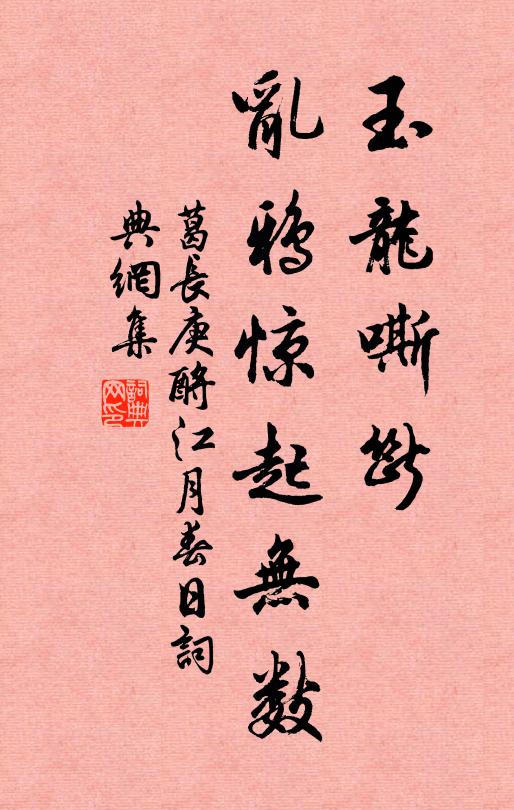 玉龍嘶斷
亂鴉惊起無数
葛長庚酹江月春日詞
典網集
詞典网印